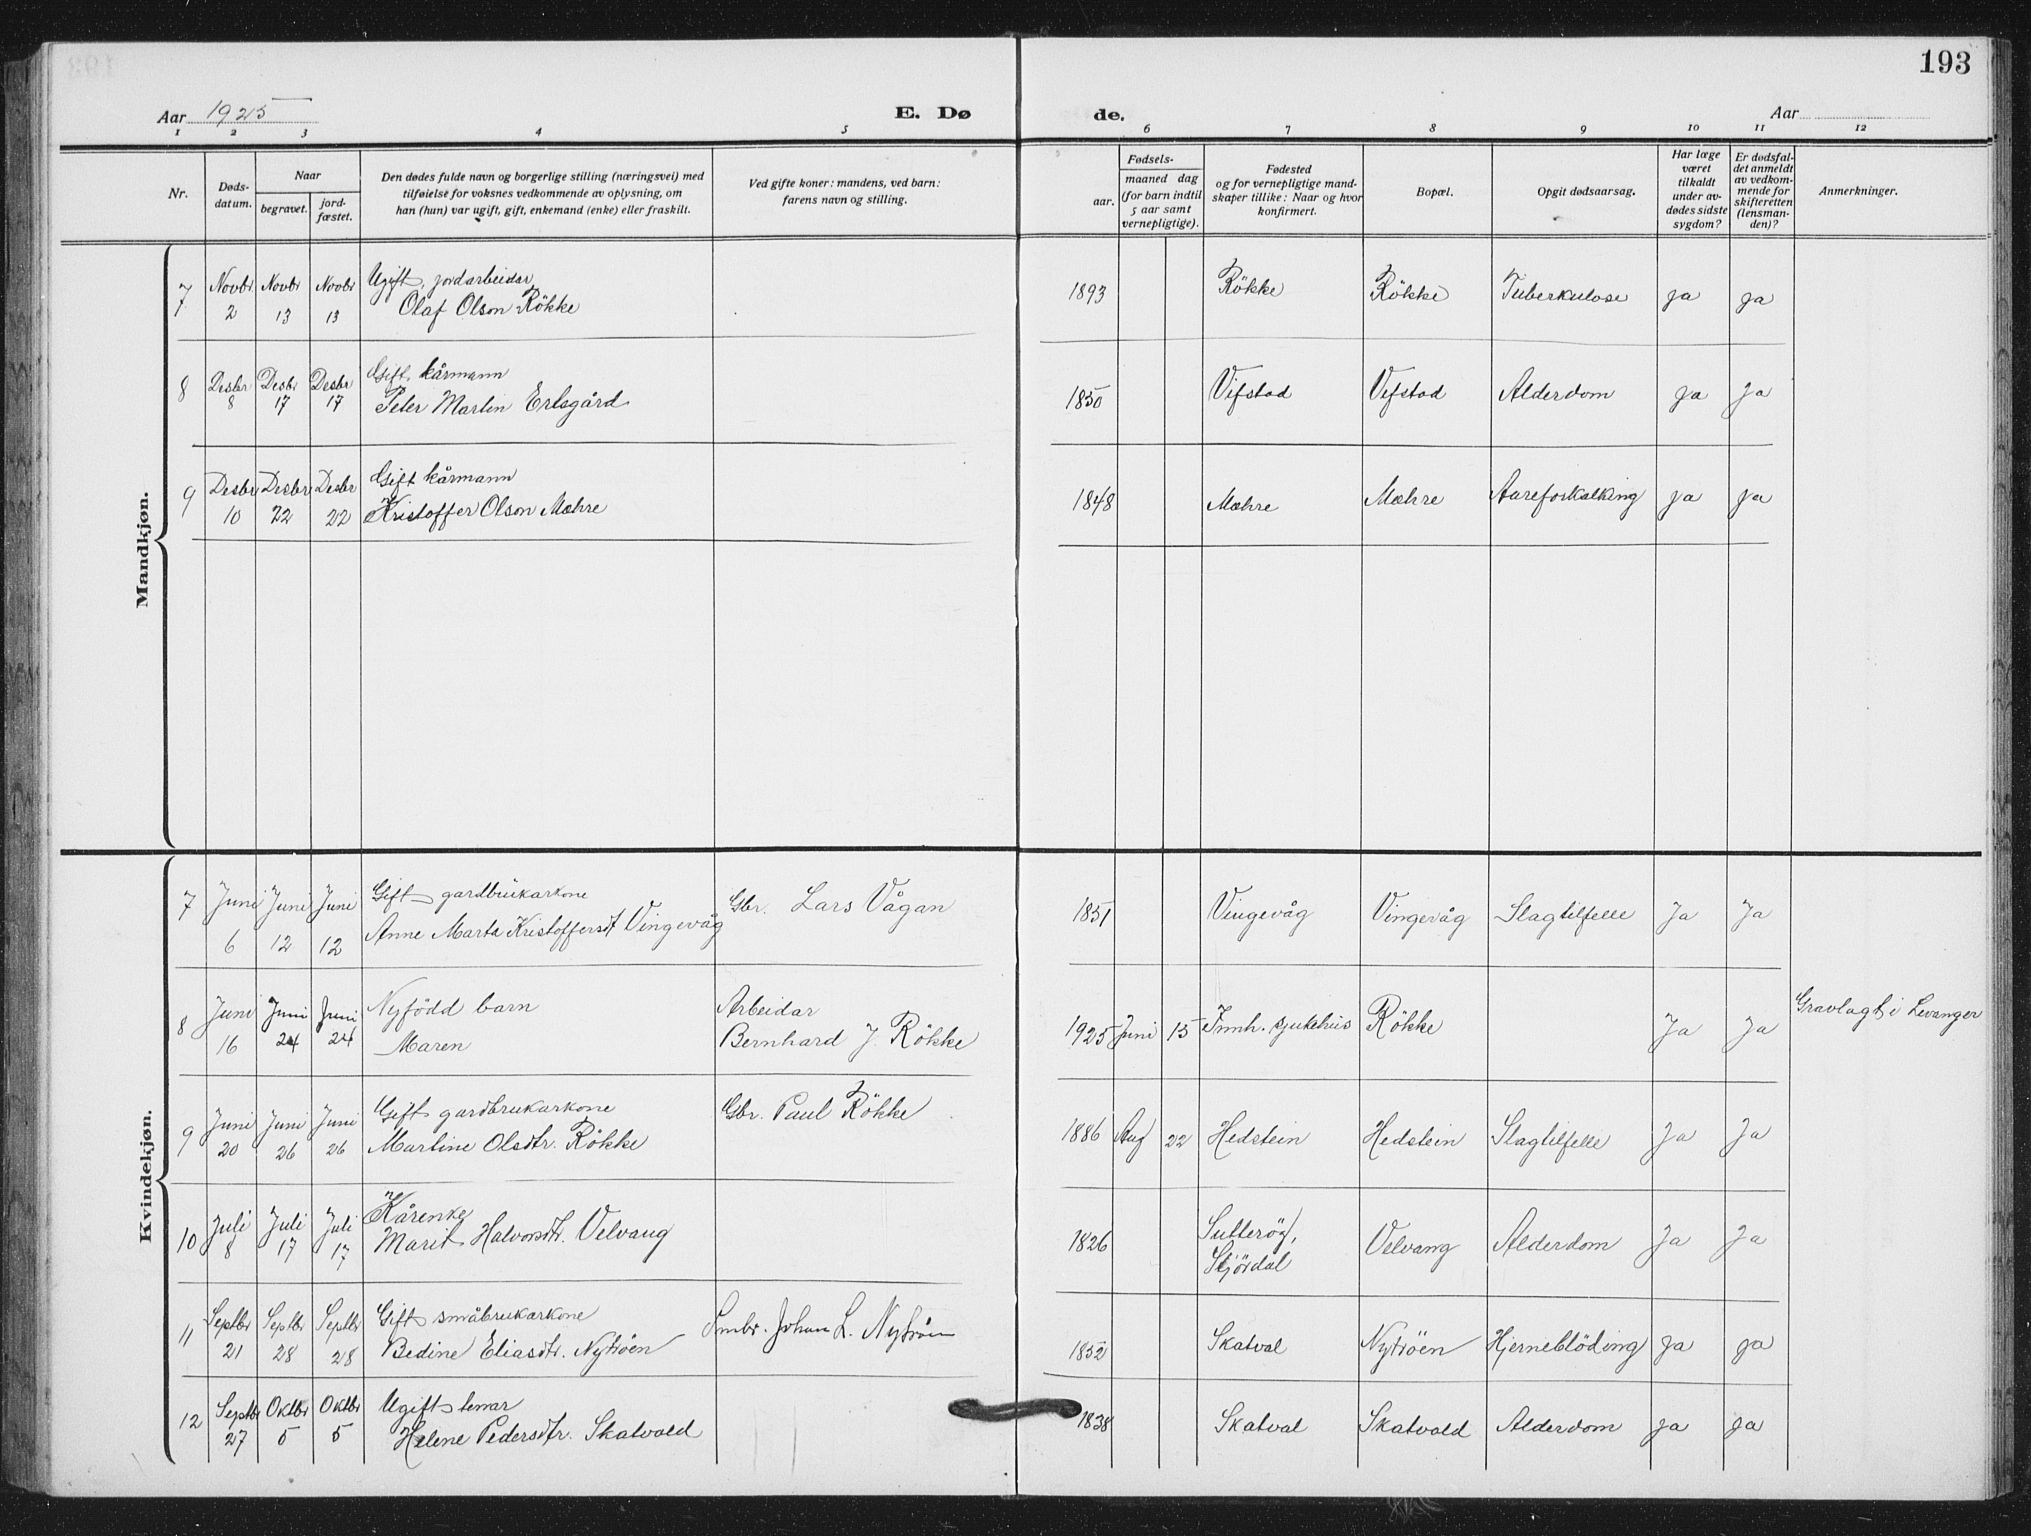 193
Aar 1925 E. Døde. Aar
1 2 3 4 5 6 7 8 9 10 11 12
Nr.
Døds-
datum.
Naar
begravet.
jord-
fæstet.
Den dødes fulde navn og borgerlige stilling (næringsvei) med
tilføielse for voksnes vedkommende av oplysning, om
han (hun) var ugift, gift, enkemand (enke) eller fraskilt.
Ved gifte koner: mandens, ved barn:
farens navn og stilling.
Fødsels-
aar.
maaned dag
(for barn indtil
5 aar samt
vernepligtige).
Fødested
og for vernepligtige mand-
skaper tillike: Naar og hvor
konfirmert.
Bopæl.
Opgit dødsaarsag.
Har læge
været
tilkaldt
under av-
dødes sidste
sygdom?
Er dødsfal-
det anmeldt
av vedkom-
mende for
skifteretten
(lensman-
den)?
Anmerkninger.
Mandkjøn.
7 Novbr Novbr Novbr Ugift, jordarbeidar 1893 Rökke Rökke Tuberkulose ja ja
2 13 13 Olaf Olson Rökke
8 Desbr Desbr Desbr Gift kårmann 1850 Vifstad Vifstad Alderdom ja Ja
8 17 17 Peter Martin Ertsgård
9 Desbr Desbr Desbr Gift kårmann 1848 Mæhre Mæhre Aareforkalking ja ja
10 22 22 Kristoffer Olson Mæhre
Kvindekjøn.
7 Juni Juni Juni Gift gardbrukarkone Gbr. Lars Vågan 1851 Vingevåg Vingevåg Slagtilfelle Ja Ja
6 12 12 Anne Marta Kristoffersdt Vingevåg
8 Juni Juni Juni Nyfödd barn Arbeidar 1925 Juni 15 Innh. sjukehus Rökke Ja Ja Gravlagt i Levanger
16 24 24 Maren Bernhard J. Rökke
9 Juni Juni Juni Gift gardbrukarkone Gbr. Paul Rökke 1886 Aug 22 Hedstein Hedstein Slagtilfelle Ja Ja
20 26 26 Martine Olsdtr. Rökke
10 Juli Juli Juli Kårenke 1826 Sutterög, Velvang Alderdom Ja Ja
8 17 17 Marit Halvorsdtr. Velvang Stjördal
11 Septbr Septbr Septbr Gift småbrukarkone Smbr. Johan L. Nytröen 1852 Skatval Nytröen Hjerneblöding ja ja
21 28 28 Bedine Eliasdtr. Nytröen
12 Septbr Oktbr Oktbr Ugift 1838 Skatval Skatvold Alderdom ja ja
27 5 5 Helene Pedersdtr. Skatvold